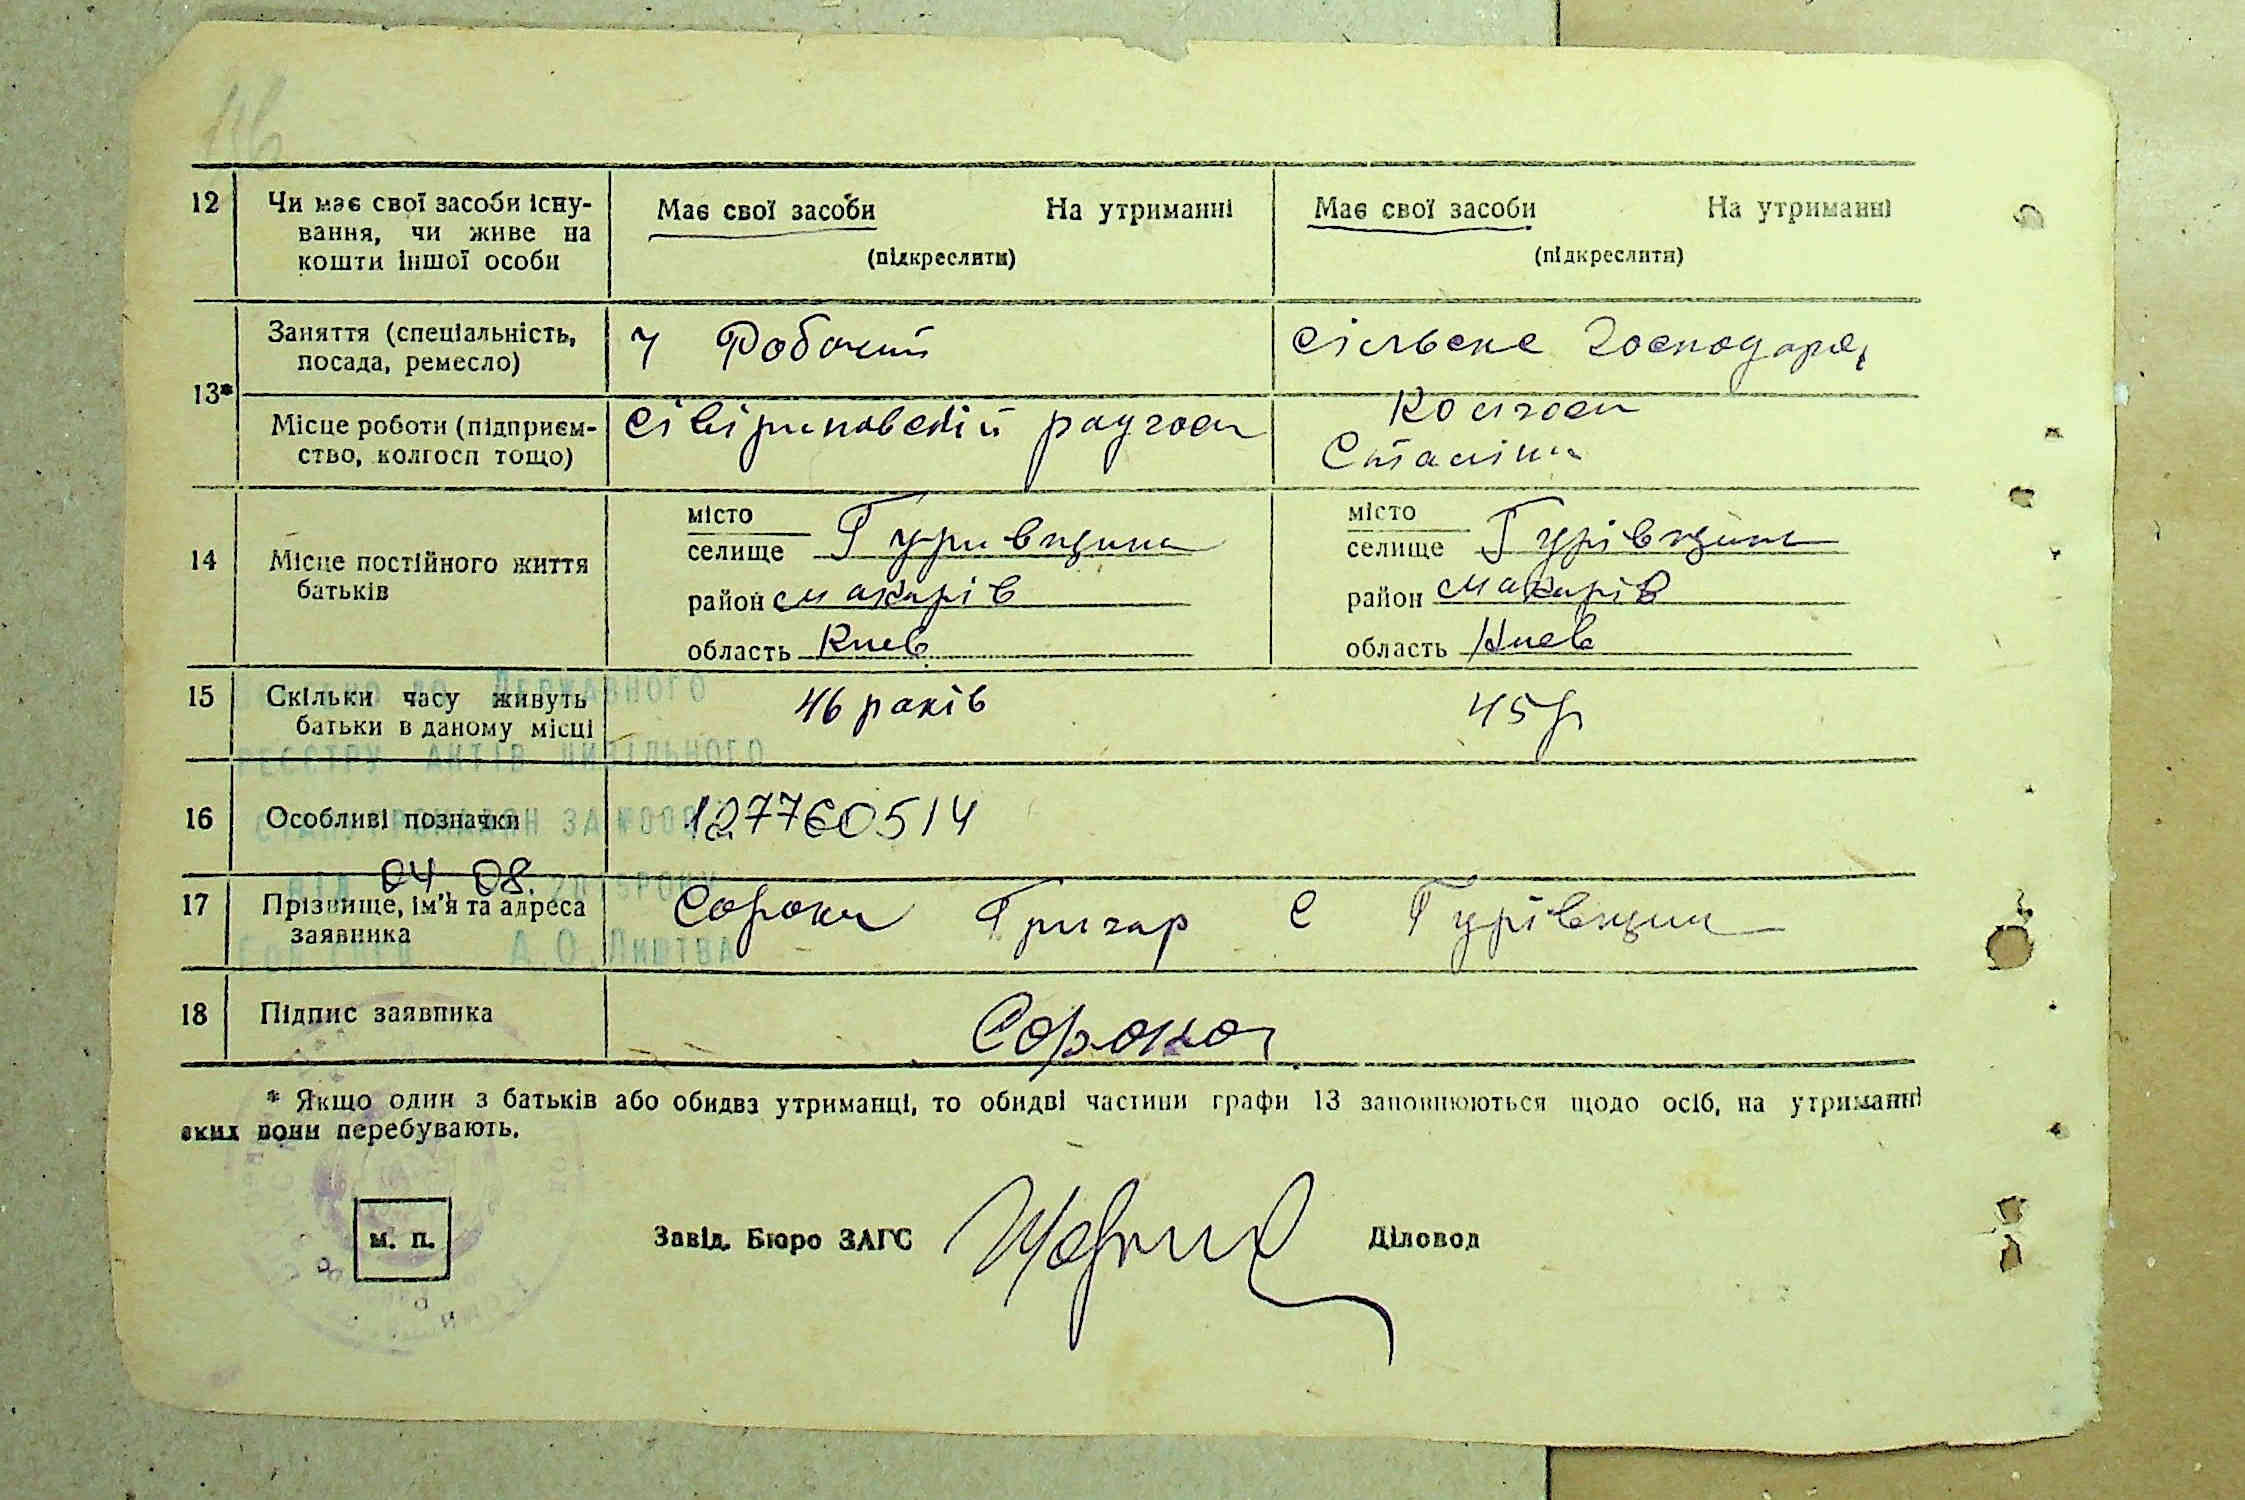 12 Чи має свої засоби існу-
вання, чи живе на
кошти іншої особи
Має свої засоби На утриманні
(підкреслити)
Має свої засоби На утриманні
(підкреслити)
13*
Заняття (спеціальність,
посада, ремесло)
Робочий
сільське господар
Місце роботи (підприєм-
ство, колгосп тощо)
радгосп
Колгосп
Сталіна
14 Місце постійного життя
батьків
місто
селище Гуривщина
район Макарів
область Киев
місто
селище Гурівщина
район Макарів
область Киев
15 Скільки часу живуть
батьки в даному місці
46 років
45 р
16 Особливі позначки
127760514
ДЕРЖАВНОГО
РЕЄСТРУ АКТІВ ЦИВІЛЬНОГО
04 08.
А.О.Лиштва
17 Прізвище, ім'я та адреса
заявника
Сорока Григор с Гурівщина
18 Підпис заявника
Сорока
* Якщо один з батьків або обидва утриманці, то обидві частини графи 13 заповнюються щодо осіб, на утриманні
яких вони перебувають.
м. п.
Завід. Бюро ЗАГС
Діловод